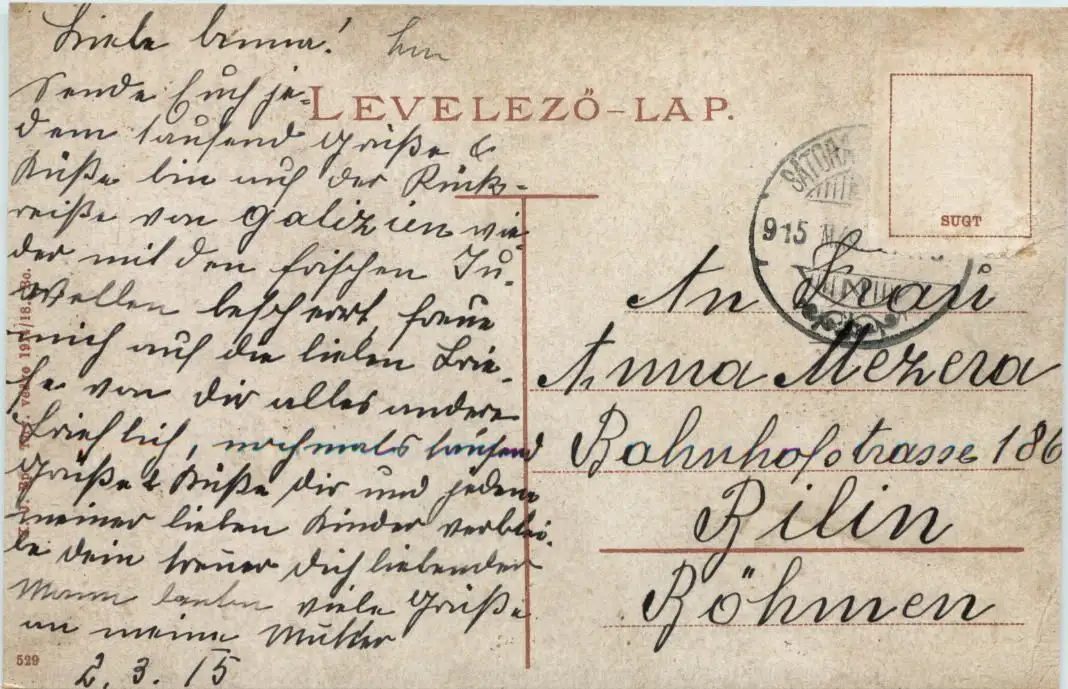 Liebe Anna!
Sende Euch je-
dem tausend Grüße &
Küße bin auf der Rück-
reiße von Galizien wie
der mit den frischen Ju-
wellen beschert, freue
mich auf die lieben Brie-
fe von dir alles andere
Brieflich, nochmals tausend
Grüße & Küße dir und jedem
meiner lieben Kinder verblei-
be dein treuer dich liebender
Mann viele Grüße
an meine Mutter
2. 3. 15
LEVELEZŐ-LAP.
SUGT
SÁTORA
915
An Frau
Anna Mezera
Bahnhofstrasse 186
Bilin
Böhmen
529